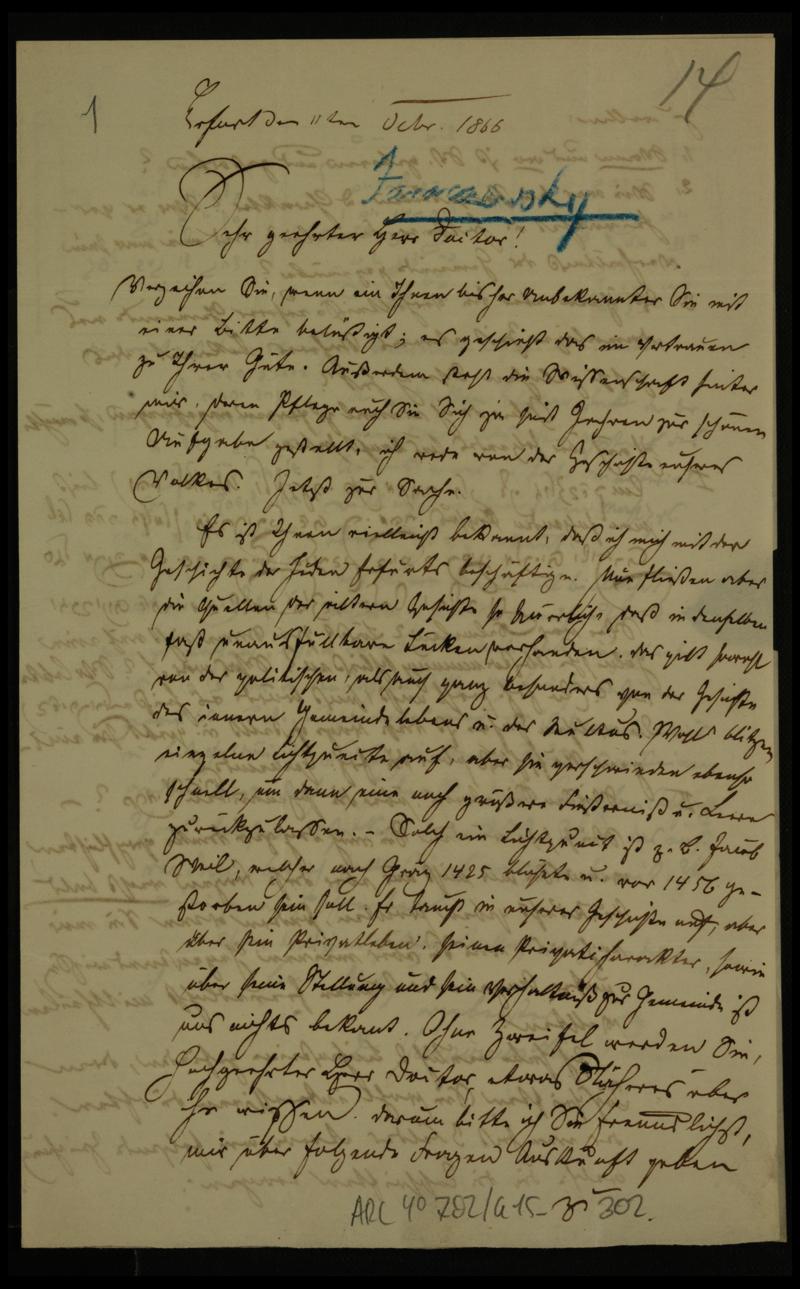 14
1
Erfurt den 11ten Octbr. 1866
Jaraczewsky
Sehr geehrter Herr Doctor!
Verzeihen Sie, wenn ein Ihnen bisher Unbekannter Sie mit
einer Bitte belästigt; es geschieht das im Vertrauen
zu Ihrer Güte. Außerdem steht die Wissenschaft hinter
mir, deren Pflege auch Sie Sich ja seit Jahren zur schönen
Aufgabe gestellt, ich rede von der Geschichte unseres
Volkes. Jetzt zur Sache.
Es ist Ihnen vielleicht bekannt, daß ich mich mit der
Geschichte der Juden Erfurts beschäftige. Nun fließen aber
die Quellen der ältern Geschichte so spärlich, daß in denselben
fast unausfüllbare Lücken vorhanden. Das gilt sowohl
von der politischen, als auch ganz besonders von der Geschichte
des innern Gemeindelebens u. des Kultus. Wohl blitzen
einzelne Lichtpunkte auf, aber sie verschwinden ebenso
schnell, um dann eine noch größere Finsterniß u. Leere
zurückzulassen. – Solch ein Lichtpunkt ist z. B. Jacob
Weil, welcher nach Grätz 1425 blühte u. vor 1456 ge-
storben sein soll. Er taucht in unserer Geschichte auf, aber
über sein Privatleben, seinen Privatcharakter, sowie
über seine Stellung und sein Verhältniß zur Gemeinde ist
uns nichts bekannt. Ohne Zweifel werden Sie,
Hochgeehrter Herr Doctor, etwas Näheres über
ihn wissen. Darum bitte ich Sie freundlichst,
mir über folgende Fragen Auskunft geben
ARC 4° 792/G 15- 302.